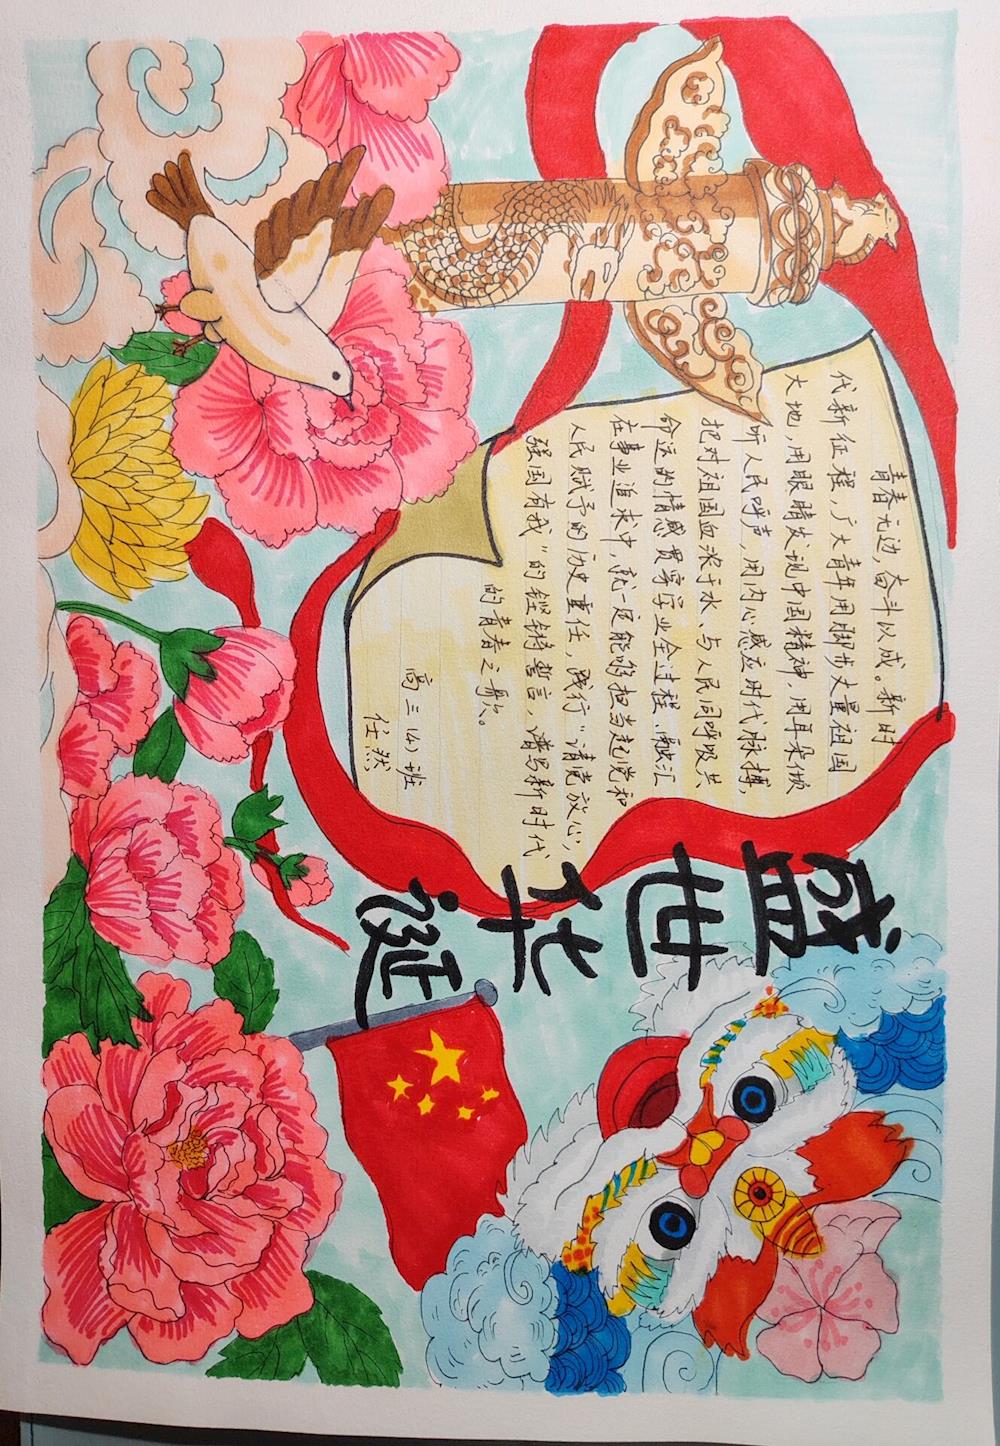 盛世华诞
青春无边,奋斗以成。新时
代新征程,广大青年用脚步丈量祖国
大地,用眼睛发现中国精神,用耳朵倾
听人民呼声,用内心感应时代脉搏,
把对祖国血浓于水、与人民同呼吸共
命运的情感贯穿学业全过程、融汇
在事业追求中,就一定能够担当起党和
人民赋予的历史重任,践行“请党放心,
强国有我”的铿锵誓言,谱写新时代
的青春之歌。
高三(4)班
任然